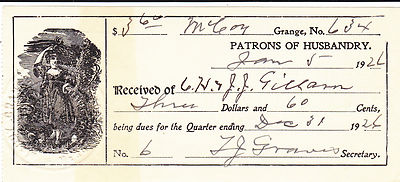 $ 3 60 McCoy Grange, No. 634
PATRONS OF HUSBANDRY.
Jan 5 1926
Received of C.H. & J.J. Gillam
Three Dollars and 60 Cents,
being dues for the Quarter ending Dec 31 1926
No. 6 T J Graves Secretary.